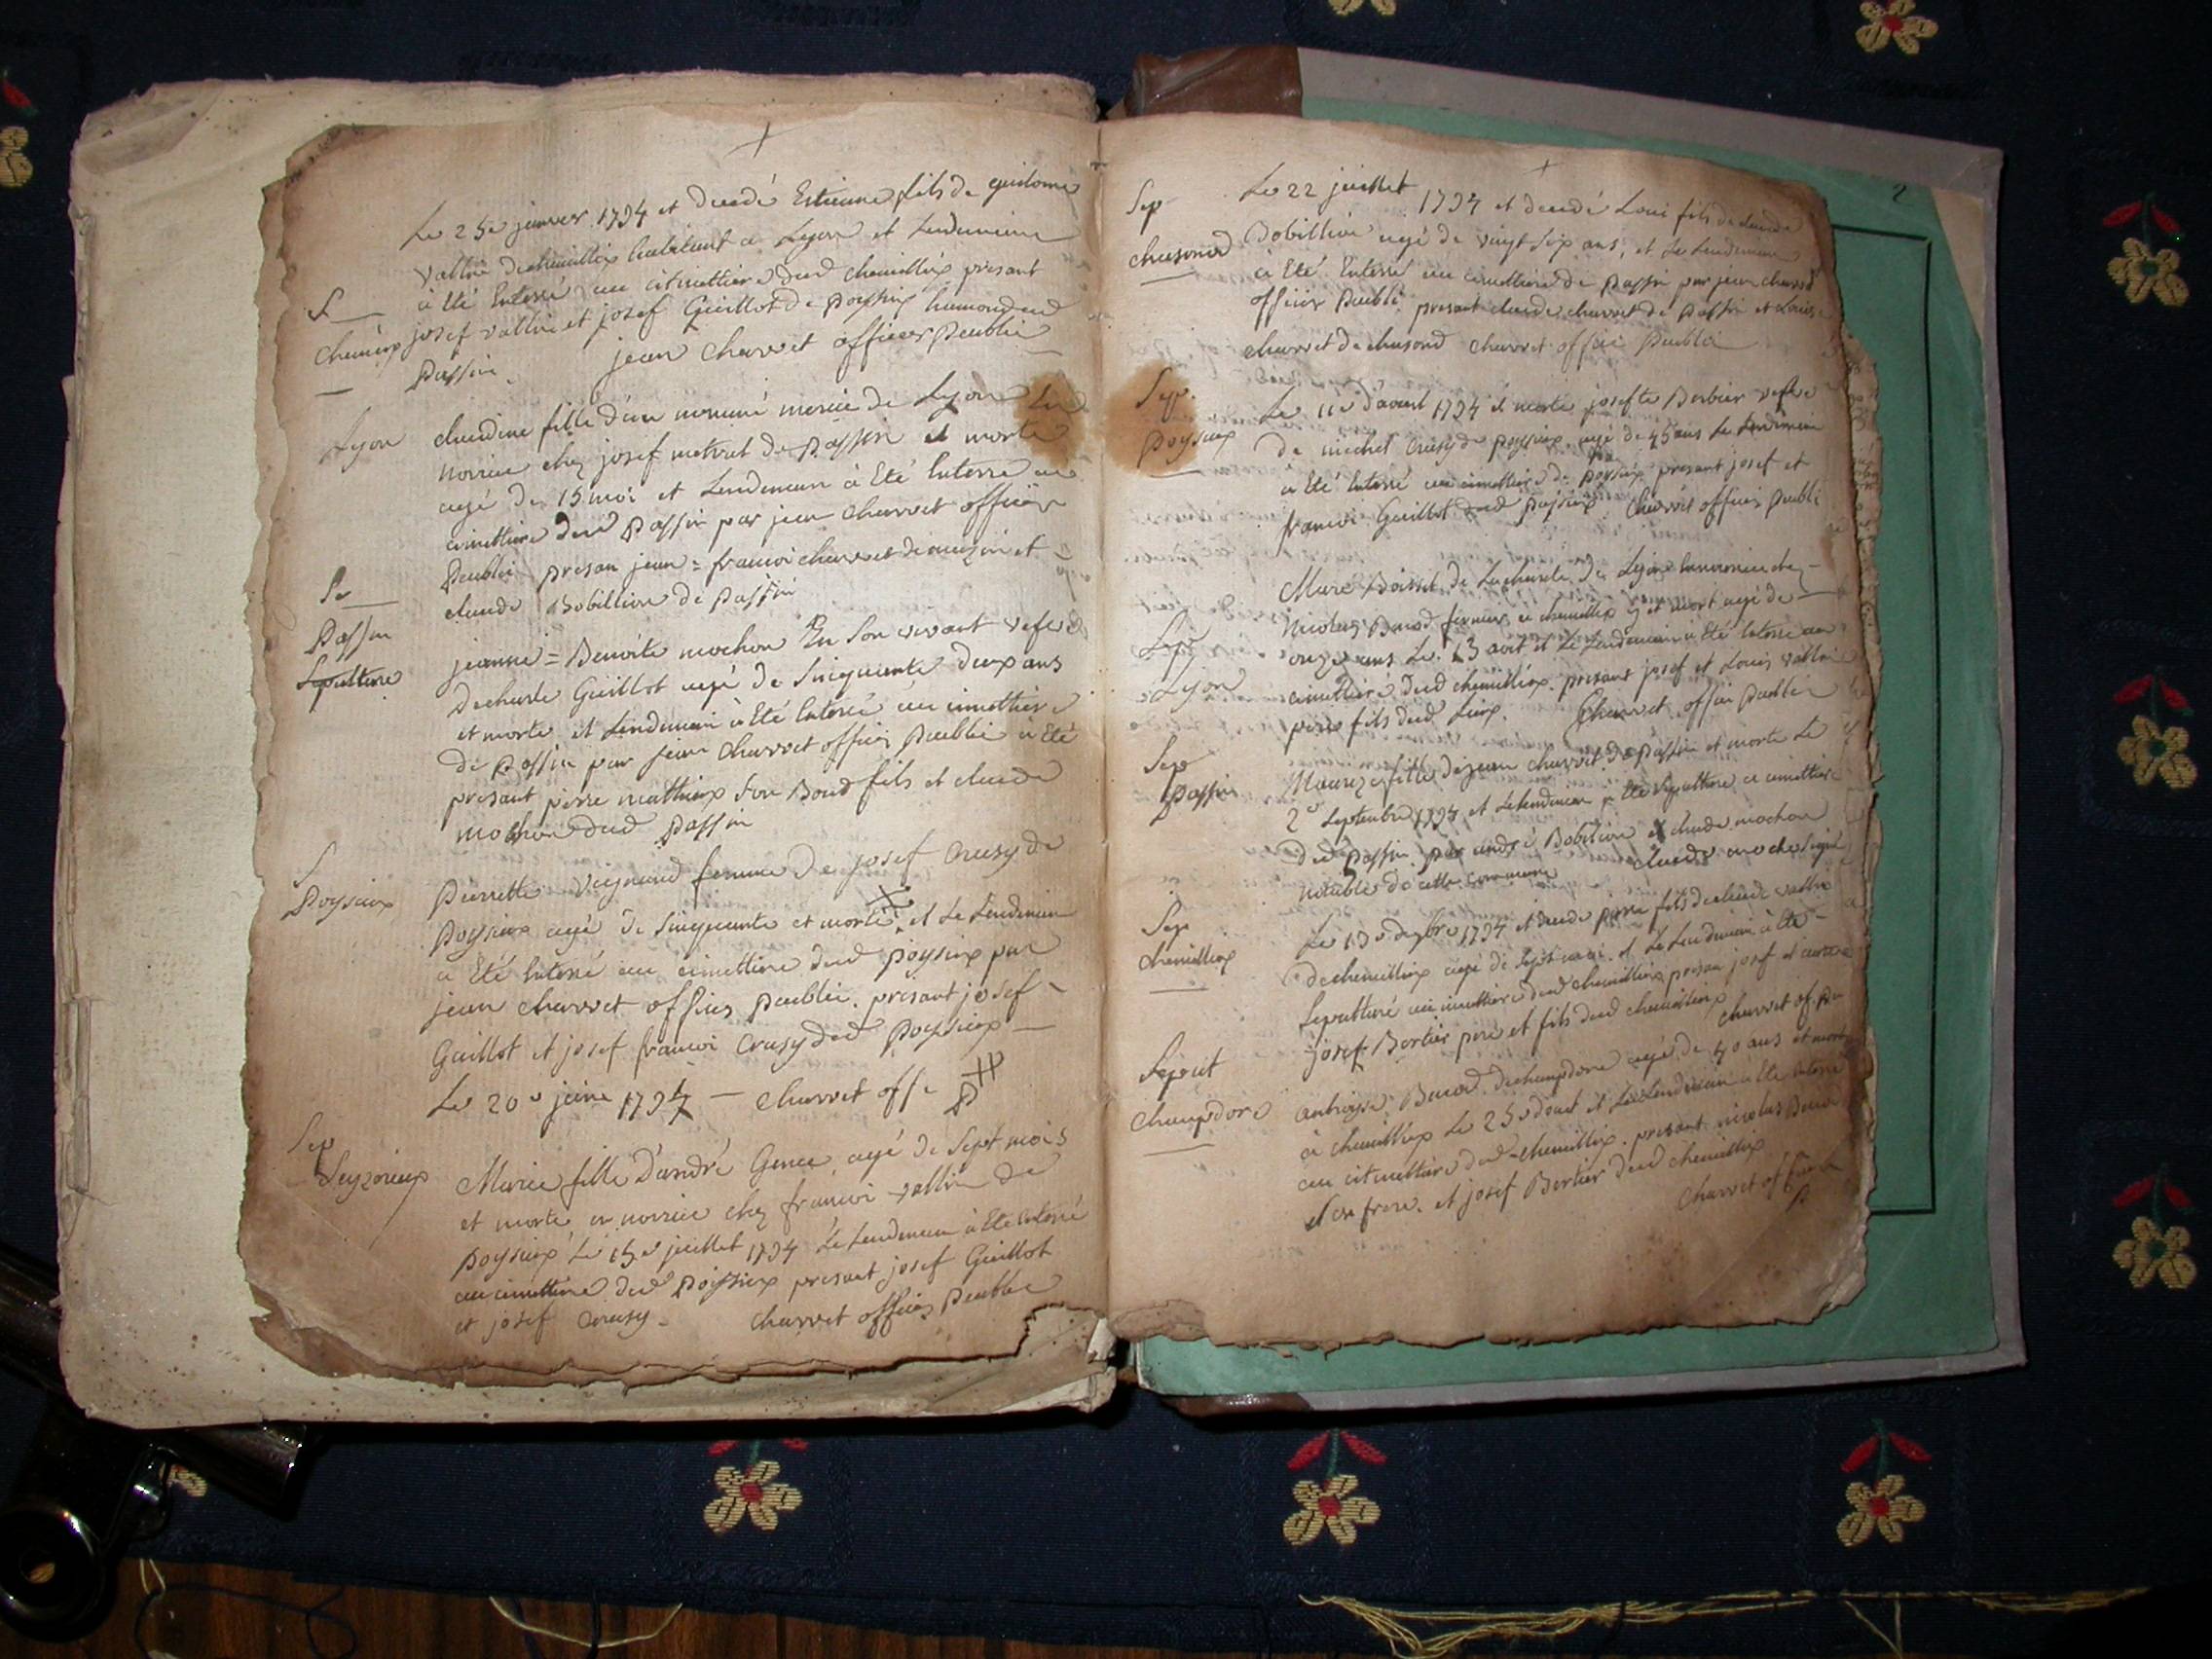 Le 25e janvier 1794 et decedé Estienne fils de guilome
vallin de chemillieu habitant a Lyon et Lendemain
S
à Eté Enterré au cimettiere dud chemillieu presant
chemieu
josef vallin et josef Guillot de poysieu
passin
jean charvet officier Publie
Lyon
claudine fille d'un nommé de Lyon En
norrice chez josef metret de passin et morte
agé de 15 moi et Lendemain à Eté Enterré au
cimettiere dud passin par jean charvet officier
Publie presan jean = francoi charvet et
claude Bobillion de passin
Se
Passin
Sepulture
jeanne = Benoite mochon En son vivant vefve
de charle Guillot agé de Sinquante deux ans
et morte et Lendemain à Eté Enterré au cimettiere
de passin par jean charvet officier Publie à Eté
presant pierre mathieux fils et claude
mochon dud passin
S
Poysieux
Pierrette femme De josef Crusy de
Poysieux agé de Sinquante et morte et Le Lendemain
à Eté Enterré au cimettiere dud poysieux par
jean charvet officier Publie. presant josef
Guillot et josef francoi Crusy dud Poysieux
Le 20e juin 1794 — charvet offi P
Sep
Seyzerieux
Marie fille D'andré agé de Sept mois
et morte en norrice chez francoi vallin de
poysieux Le 15e juillet 1794 Le Lendemain à Eté Enterré
au cimettiere dud Poissieux presant josef Guillot
et josef Crusy. charvet officier Publie
2
Le 22 juillet 1794 et decedé Loui fils de claude
Sep
Bobillion agé de vingt Six ans, et Le Lendemain
chasond
à Eté Enterré au cimettiere de passin par jean charvet
officier Publie presant claude charvet de passin et Louis
charvet de chasond charvet officie Publie
Sep.
Le 11e d'aoust 1794 et morte josefte Berbier vefve
Poysieux
de michel Crusy de poysieux agé de 45 ans Le Lendemain
à Eté Enterré au cimettiere de poysieux presant josef et
francoi Guillot dud poysieux charvet officier Publi
Marc Boisset de La charite de Lyon en norrice chez
Nicolas fermier a chemillieu y et mort agé de
Sep
onze ans Le 13 aout et Le Lendemain à Eté Enterré au
Lyon
cimettiere dud chemillieux. presant josef et Louis vallin
pere fils dud Lieux. Charvet offici Publie
Sep
fille de jean charvet de passin et morte Le
passin
2e Septembre 1794 et Le lendemain a Eté Sepulture a cimettiere
dud passin par andre Bobilion et claude mochon
notable de cette commune claude moche Signé
Sep
Le 1794 et decede pierre fils de claude vallin
chemillieux
de chemillieux agé de Sept moi. et Le Lendemain à Eté
Sepulturé au cimettiere dud chemillieux presan josef et
josef Bertier pere et fils dud chemillieux charvet of. Pu
Sepout
champdore
de champdore agé de 40 ans et mort
a chemillieux Le 25e d'out et Le Lendemain a Eté Enterré
au citmettiere dud chemillieu. presant nicolas
et son frere. et josef Bertier dud chemillieu
charvet of